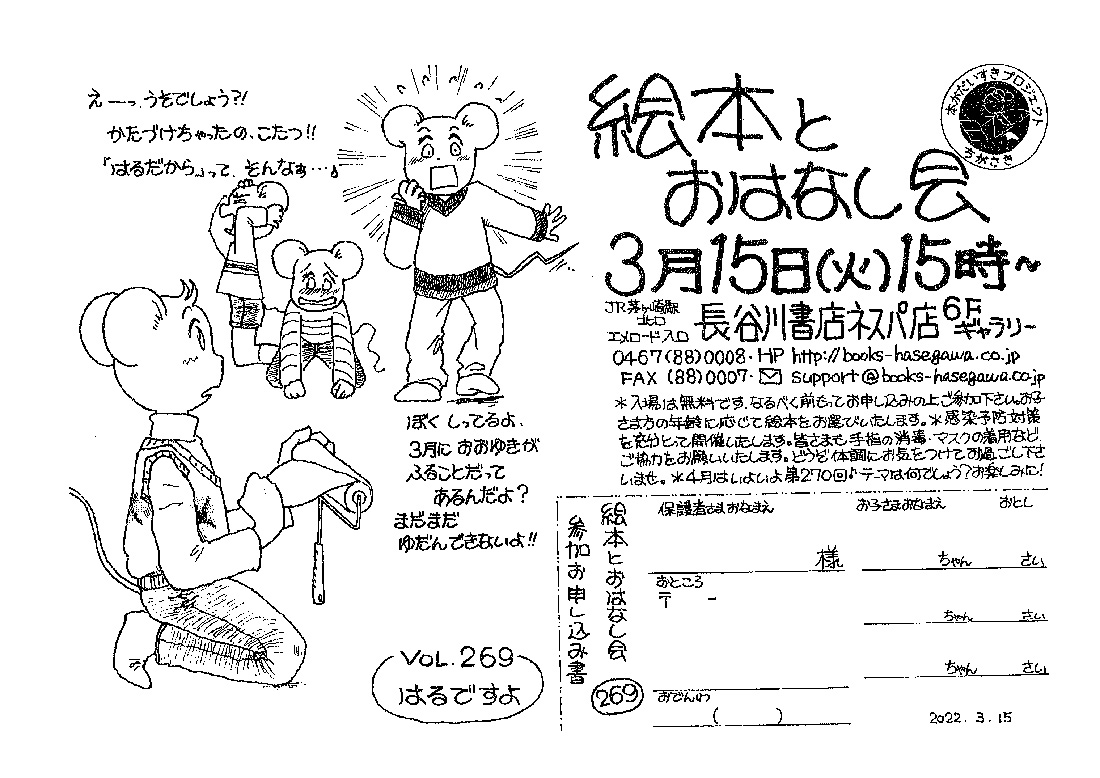 えーっ、うそでしょう?!
かたづけちゃったの、こたつ!!
「はるだから」って、そんなぁ…♪
ぼく しってるよ、
3月に おおゆきが
ふることだって
あるんだよ?
まだまだ
ゆだんできないよ!!
VOL.269
はるですよ
本がだいすきプロジェクト
ちがさき
絵本と
おはなし会
3月15日(火)15時~
JR茅ヶ崎駅
北口
エメロード入口
長谷川書店ネスパ店6Fギャラリー
0467(88)0008・HP http://books-hasegawa.co.jp
FAX (88)0007・✉ support@books-hasegawa.co.jp
*入場は無料です。なるべく前もってお申し込みの上ご参加下さい。お子
さま方の年齢に応じて絵本をお選びいたします。*感染予防対策
を充分とって開催いたします。皆さまも手指の消毒・マスクの着用など、
ご協力をお願いいたします。どうぞ体調にお気をつけてお過ごし下さ
いませ。*4月はいよいよ第270回♪テーマは何でしょう?お楽しみに!
絵本とおはなし会
269
参加お申し込み書
保護者さまおなまえ
お子さまおなまえ
おとし
様
ちゃん さい
おところ
〒 -
ちゃん さい
ちゃん さい
おでんわ
( )
2022.3.15